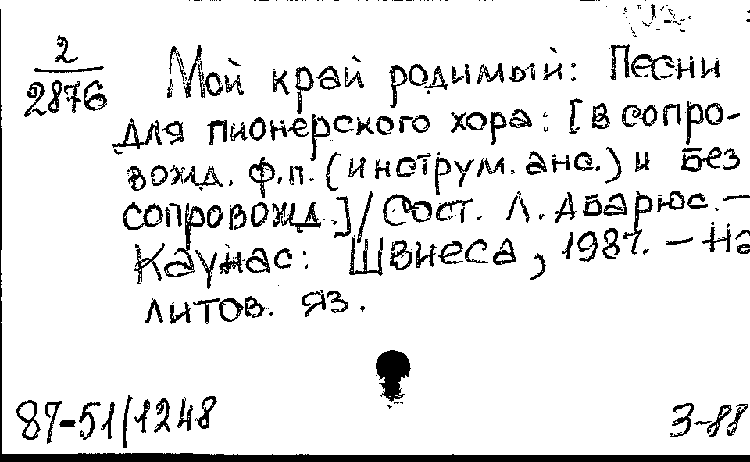 2
2876
Мой край родимый: Песни
для пионерского хора: [в сопро-
вожд. ф.п. (инструм. анс.) и без
сопровожд.] / Сост. Л. Абарюс. –
Каунас: Швиеса, 1987. – На
литов. яз.
87-51/1248
3-88